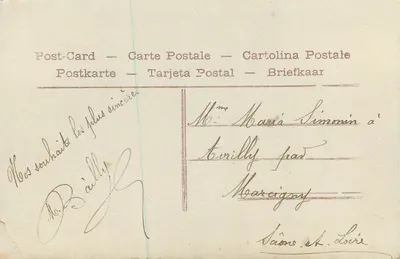 Post-Card — Carte Postale — Cartolina Postale
Postkarte — Tarjeta Postal — Briefkaar
Nos souhaits les plus sincères
Bailly
Mme Maria Simonin à
Avrilly par
Marcigny
Saône et Loire